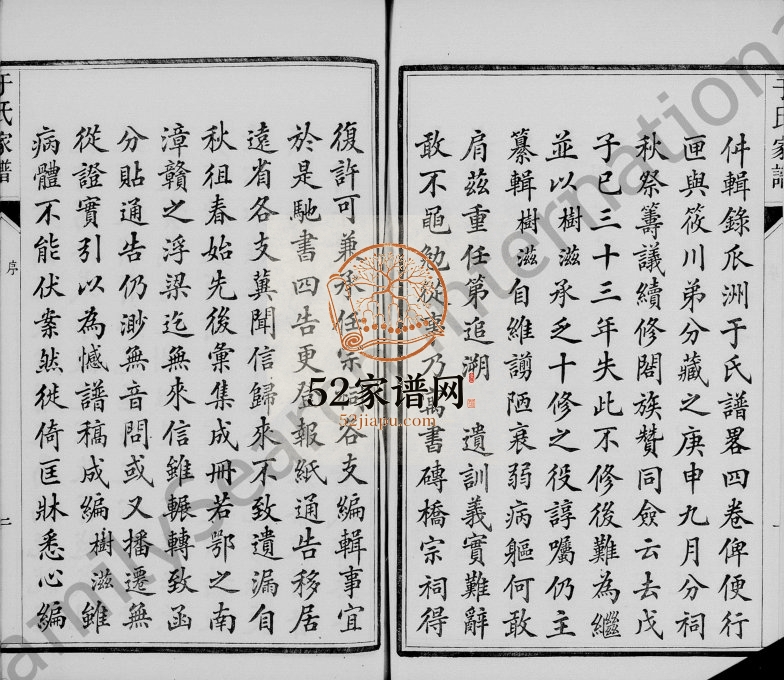 于氏家譜
仲輯錄瓜洲于氏譜畧四卷俾便行
匣與筱川弟分藏之庚申九月分祠
秋祭籌議續修闔族贊同僉云去戊
子已三十三年失此不修後難為繼
並以樹滋承乏十修之役諄囑仍主
纂輯樹滋自維謭陋衰弱病軀何敢
肩茲重任第追溯 遺訓義實難辭
敢不黽勉從事乃 書磚橋宗祠得
復許可兼承任宗 各支編輯事宜
於是馳書四告更登報紙通告移居
遠省各支冀聞信歸來不致遺漏自
秋徂春始先後彙集成冊若鄂之南
漳贛之浮梁迄無來信雖輾轉致函
分貼通告仍渺無音問或又播遷無
從證實引以為憾譜稿成編樹滋雖
病體不能伏案然徙倚匡牀悉心編
于氏家譜
序
二
52家谱网
52jiapu.com
FamilySearch International